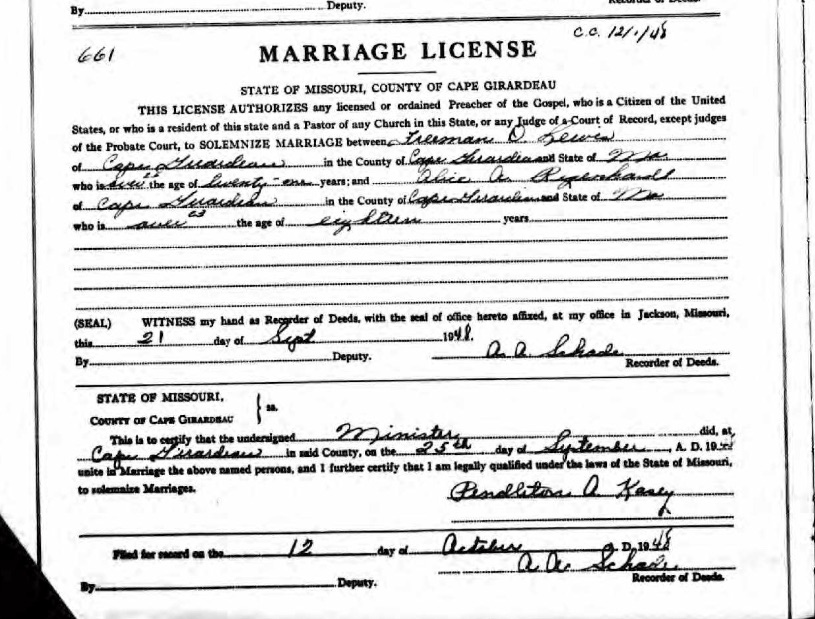 By Deputy.
661
C.C. 12/1/48
MARRIAGE LICENSE
STATE OF MISSOURI, COUNTY OF CAPE GIRARDEAU
THIS LICENSE AUTHORIZES any licensed or ordained Preacher of the Gospel, who is a Citizen of the United
States, or who is a resident of this state and a Pastor of any Church in this State, or any Judge of a Court of Record, except judges
of the Probate Court, to SOLEMNIZE MARRIAGE between Freeman D. Lewis
of Cape Girardeau in the County of Cape Girardeau and State of Mo
who is over the age of twenty-one years; and Alice A.
of Cape Girardeau in the County of Cape Girardeau and State of Mo
who is over 23 the age of eighteen years
(SEAL) WITNESS my hand as Recorder of Deeds, with the seal of office hereto affixed, at my office in Jackson, Missouri,
this 21 day of Sept 1948.
By Deputy. A. A. Schade
Recorder of Deeds.
STATE OF MISSOURI,
COUNTY OF CAPE GIRARDEAU } ss.
This is to certify that the undersigned Minister did, at
Cape Girardeau in said County, on the 25th day of September, A. D. 1948
unite in Marriage the above named persons, and I further certify that I am legally qualified under the laws of the State of Missouri,
to solemnize Marriages.
Pendleton A. Kasey
Filed for record on the 12 day of October A. D. 1948
A. A. Schade
By Deputy. Recorder of Deeds.